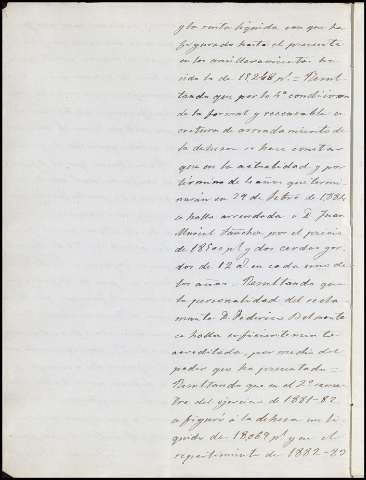 y la renta líquida con que ha
figurado hasta el presente
en los amillaramientos ha
sido la de 15268 pts = Resul-
tando que por la 4ª condicion
de la formal y reconocible es-
critura de arrendamiento de
la dehesa se hace constar
que en la actualidad y por
término de años que termi-
narán en 29 de Setbre de 1884
se halla arrendada a D. Juan
Muriel Sanchez por el precio
de 18500 pts y dos cerdos gor-
dos de 12 @ en cada uno de
los años. Resultando que
la personalidad del recla-
mante D. Federico Belmonte
se halla suficientemente
acreditada, por medio del
poder que ha presentado =
Resultando que en el 2º semes-
tre del ejercicio de 1881-82
se figuró a la dehesa un lí-
quido de 18,069 pts y en el
repartimiento de 1882-83